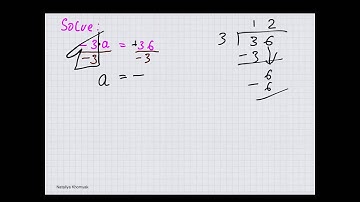 Solve:
-3·a = +36
-3 -3
a = -
1 2
3 3 6
- 3
6
- 6
Nataliya Khomyak